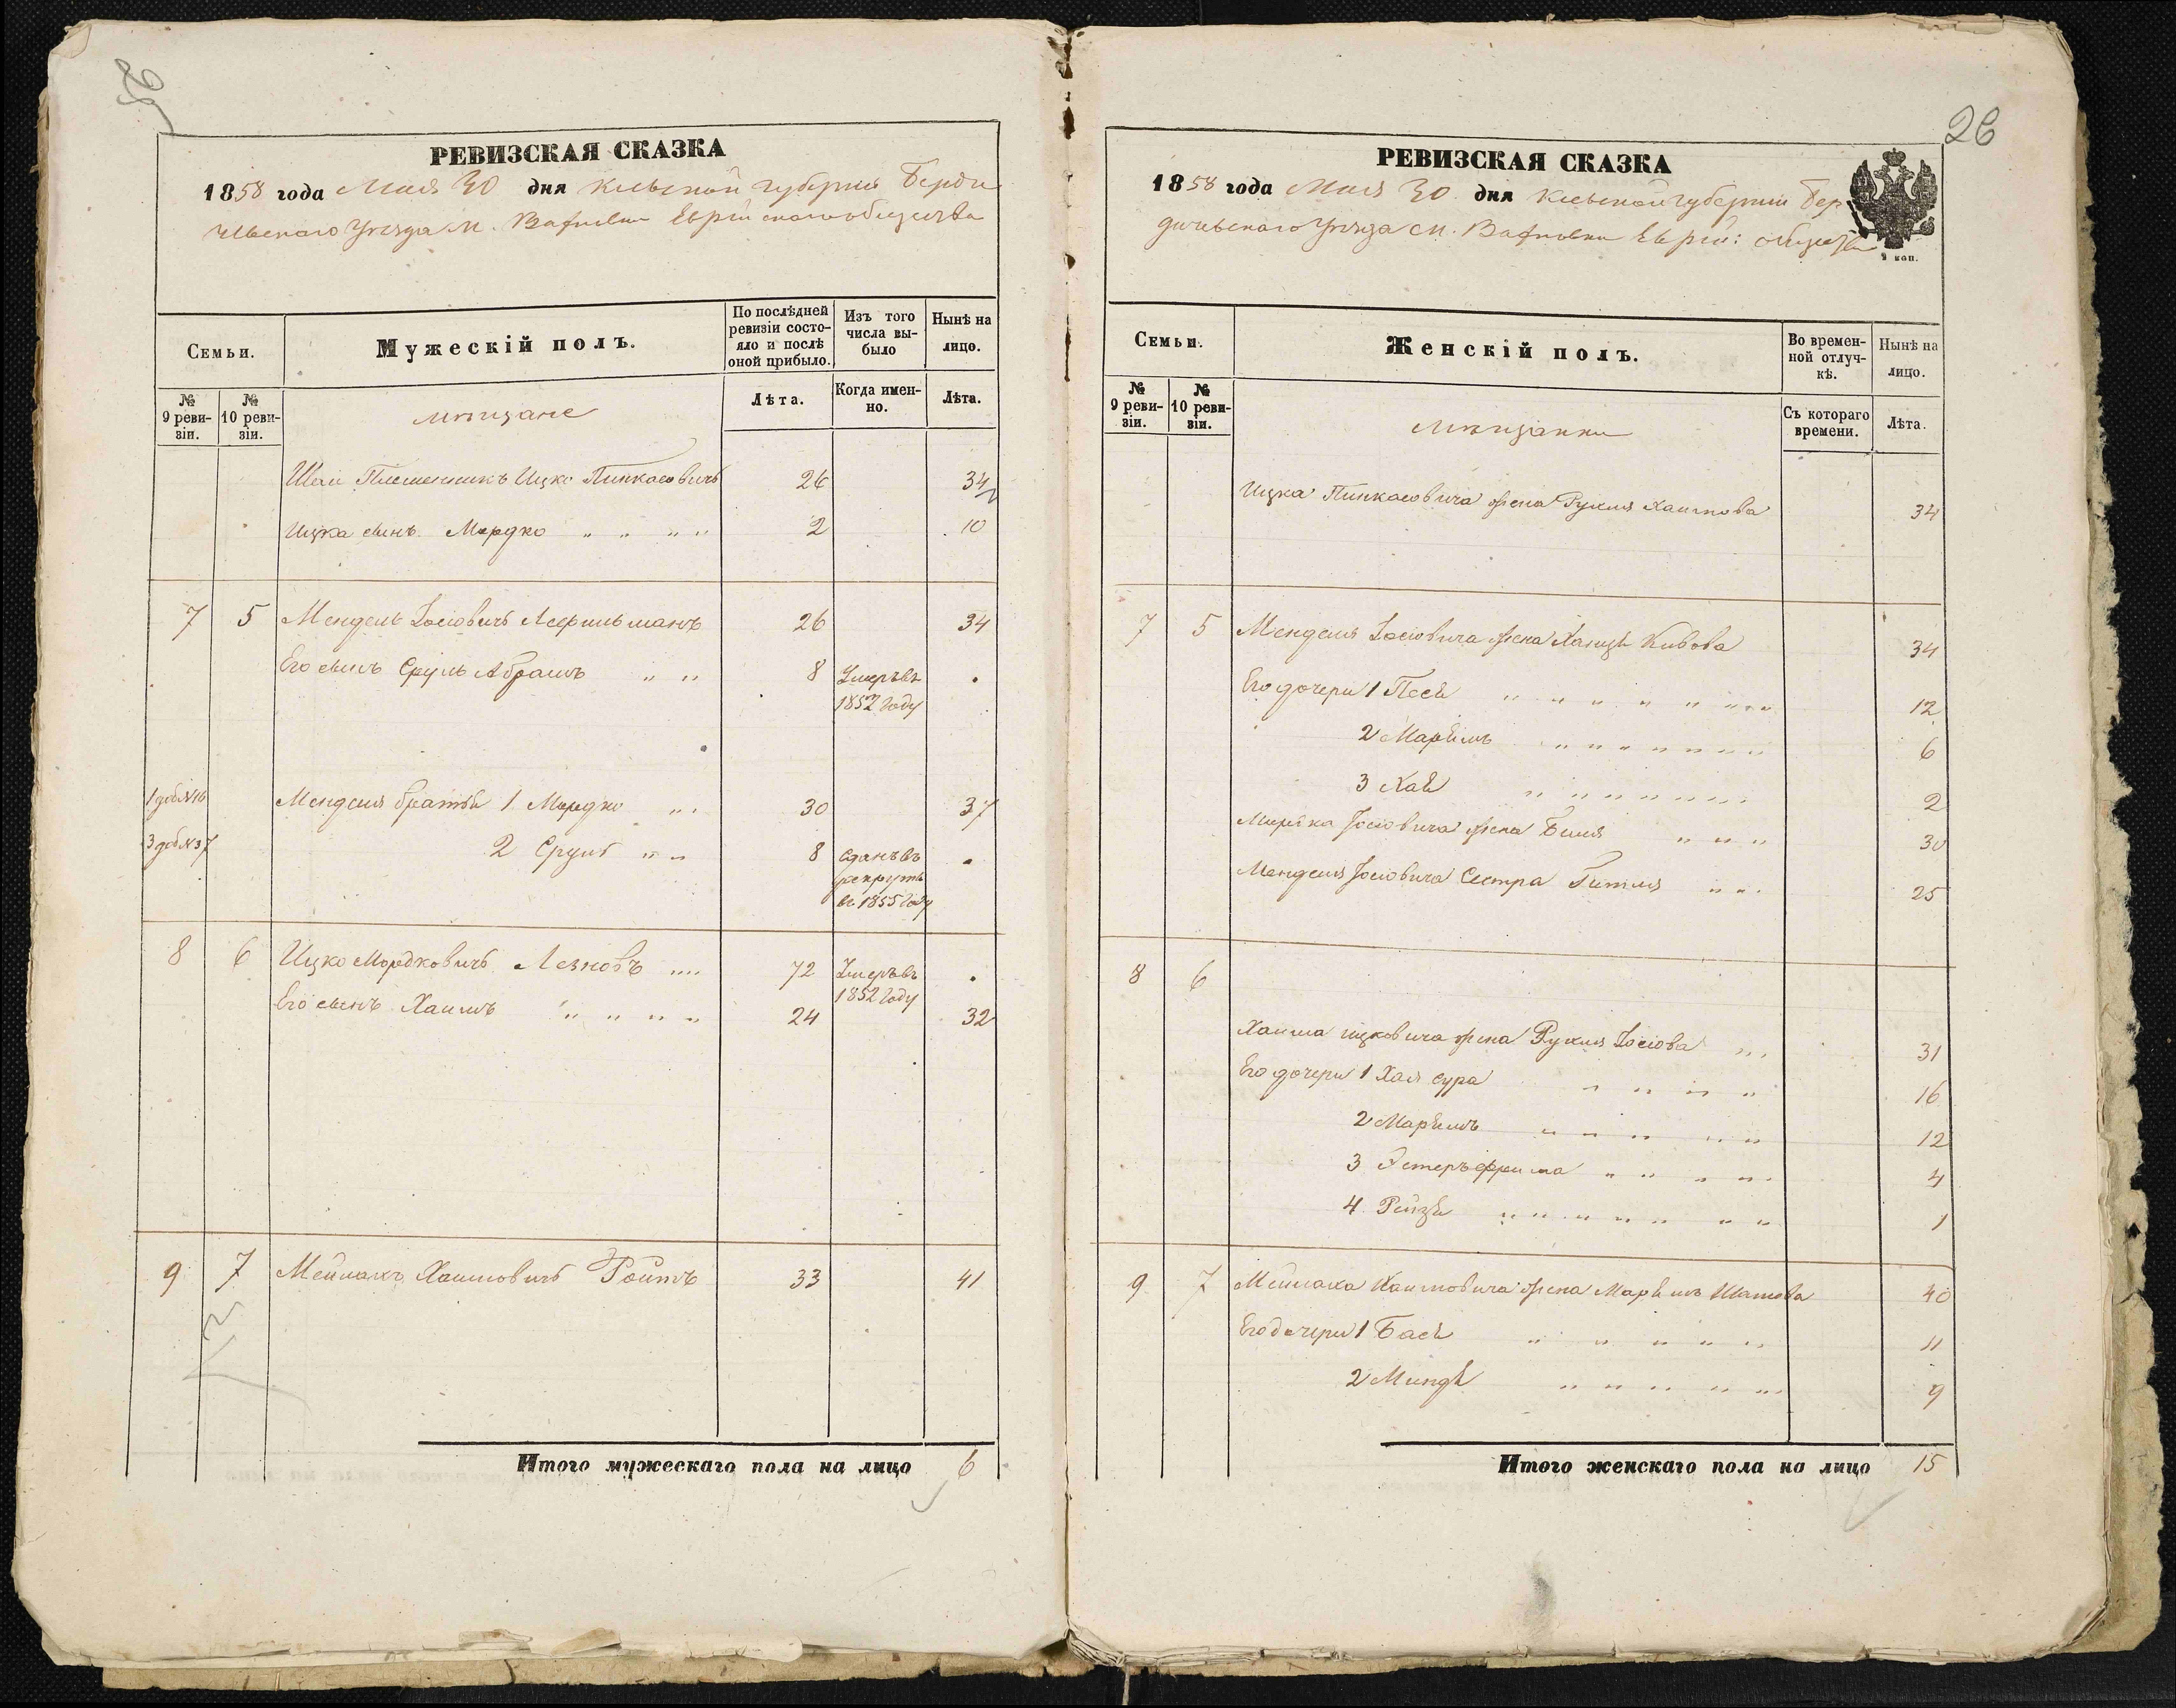 26
РЕВИЗСКАЯ СКАЗКА
1858 года Мая 30 дня Киевской губернии Берди
чевскаго Уезда м. Вахновки Еврейскаго общества
Семьи.
Мужескій полъ.
По послѣдней ревизіи состояло и послѣ оной прибыло.
Изъ того числа выбыло
Нынѣ на лицо.
№ 9 ревизіи.
№ 10 ревизіи.
мѣщане
Лѣта.
Когда именно.
Лѣта.
Шаи Племенникъ Ицко Пинкасовичъ 26 34
Ицка сынъ Мордко " " " " 2 10
7 5 Мендель Іосіовичъ 26 34
Его сынъ Сруль Абрамъ " " 8 Умеръ въ
1852 году
1 доб №16 Менделя братья 1 Мордко " " 30 37
3 доб №37 2 Сруль " " 8 сданъ въ
рекруты
въ 1855 году
8 6 Ицко Мордковичъ Лезновъ " " 72 Умеръ въ
1852 году
Его сынъ Хаимъ " " " " 24 32
9 7 Мейлахъ Хаимовичъ Ройтъ 33 41
Итого мужескаго пола на лицо 6
26
РЕВИЗСКАЯ СКАЗКА
1858 года Мая 30 дня Киевской губернии Бер
дичевскаго Уезда м. Вахновки Еврей: общества
коп.
Семьи.
Женскій полъ.
Во временной отлучкѣ.
Нынѣ на лицо.
№ 9 ревизіи.
№ 10 ревизіи.
мѣщанки
Съ котораго времени.
Лѣта.
Ицка Пинкасовича жена Рухля Хаимова 34
7 5 Менделя Іосіовича жена Ханця Кивова 34
Его дочери 1 Песя " " " " " " " 12
2 Марьямъ " " " " " " " 6
3 Хая " " " " " " " 2
Мордка Іосіовича жена Бейля " " " 30
Менделя Іосіовича Сестра Гитля " " 25
8 6
Хаима Ицковича жена Рухля Іосіова " " 31
Его дочери 1 Хая Сура " " " " 16
2 Марьямъ " " " " " 12
3 Эстеръ Фрима " " " " 4
4 Рейзя " " " " " " " 1
9 7 Мейлаха Хаимовича жена Марьямъ Шаева 40
Его дочери 1 Бася " " " " " 11
2 Миндя " " " " " 9
Итого женскаго пола на лицо 15